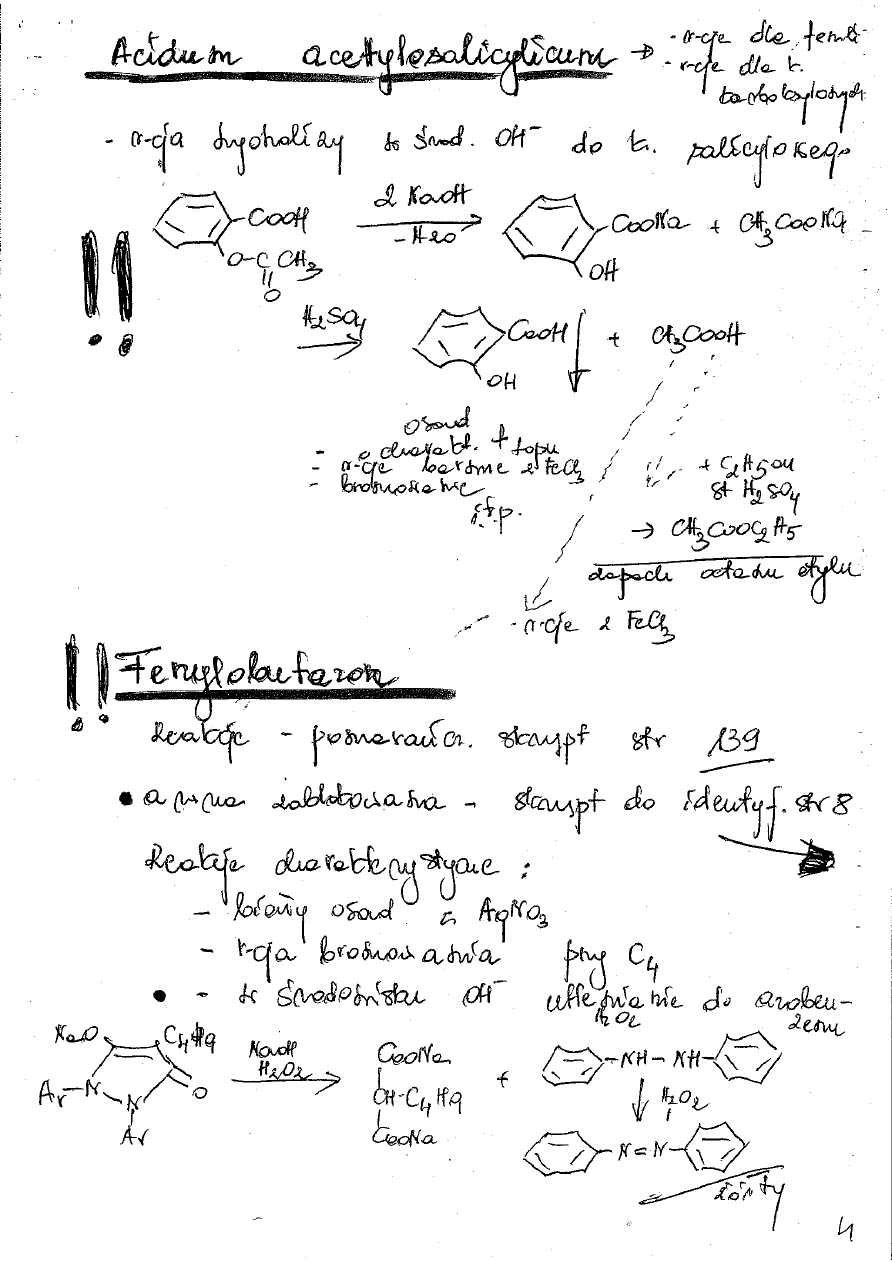 Acidum acetylosalicylicum → - r-cje dla fenoli
- r-cje dla k.
karboksylowych
- r-cja hydrolizy w środ. OH⁻ do k. salicylowego
COOH
O-C CH3
O
2 NaOH
-H2O
COONa + CH3COONa
OH
!!
H2SO4
COOH + CH3COOH
OH
osad
- charakt. t topn
- r-cje barwne z FeCl3
- bromowanie
i.t.p.
+ C2H5OH
st H2SO4
→ CH3COOC2H5
zapach octanu etylu
- r-cje z FeCl3
!! Fenylobutazon
Reakcje - skrypt str 139
• - skrypt do identyf. str 8
Reakcje charakterystyczne :
- biały osad z AgNO3
- r-cja bromowania przy C4
• - w środowisku OH⁻ utlenianie do azoben-
H2O2
zenu
NaO C4H9
Ar-N N O
Ar
NaOH
H2O2
COONa
CH-C4H9
COONa
+
-NH-NH-
H2O2
-N=N-
żółty
4